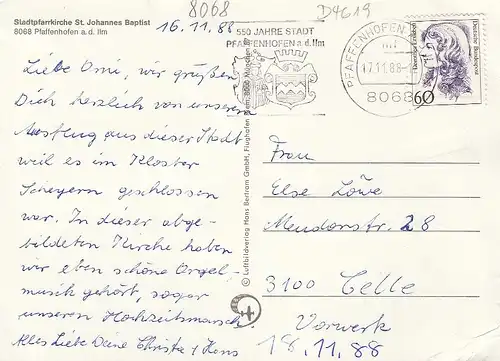 Stadtpfarrkirche St. Johannes Baptist
8068 Pfaffenhofen a. d. Ilm
8068
D4619
16.11.88
Liebe Omi, wir grüßen
Dich herzlich von unserem
Ausflug aus dieser Stadt
weil es im Kloster
Scheyern geschlossen
war. In dieser abge-
bildeten Kirche haben
wir eben schöne Orgel-
musik gehört, sogar
unseren Hochzeitsmarsch
Alles Liebe Deine Christa + Hans
550 JAHRE STADT
PFAFFENHOFEN a.d.Ilm
PFAFFENHOFEN
17.11.88
8068
60
Deutsche Bundespost
© Luftbildverlag Hans Bertram GmbH, Flughafen
Frau
Else Löwe
Mendorstr. 28
3100 Celle
Vorwerk
18.11.88